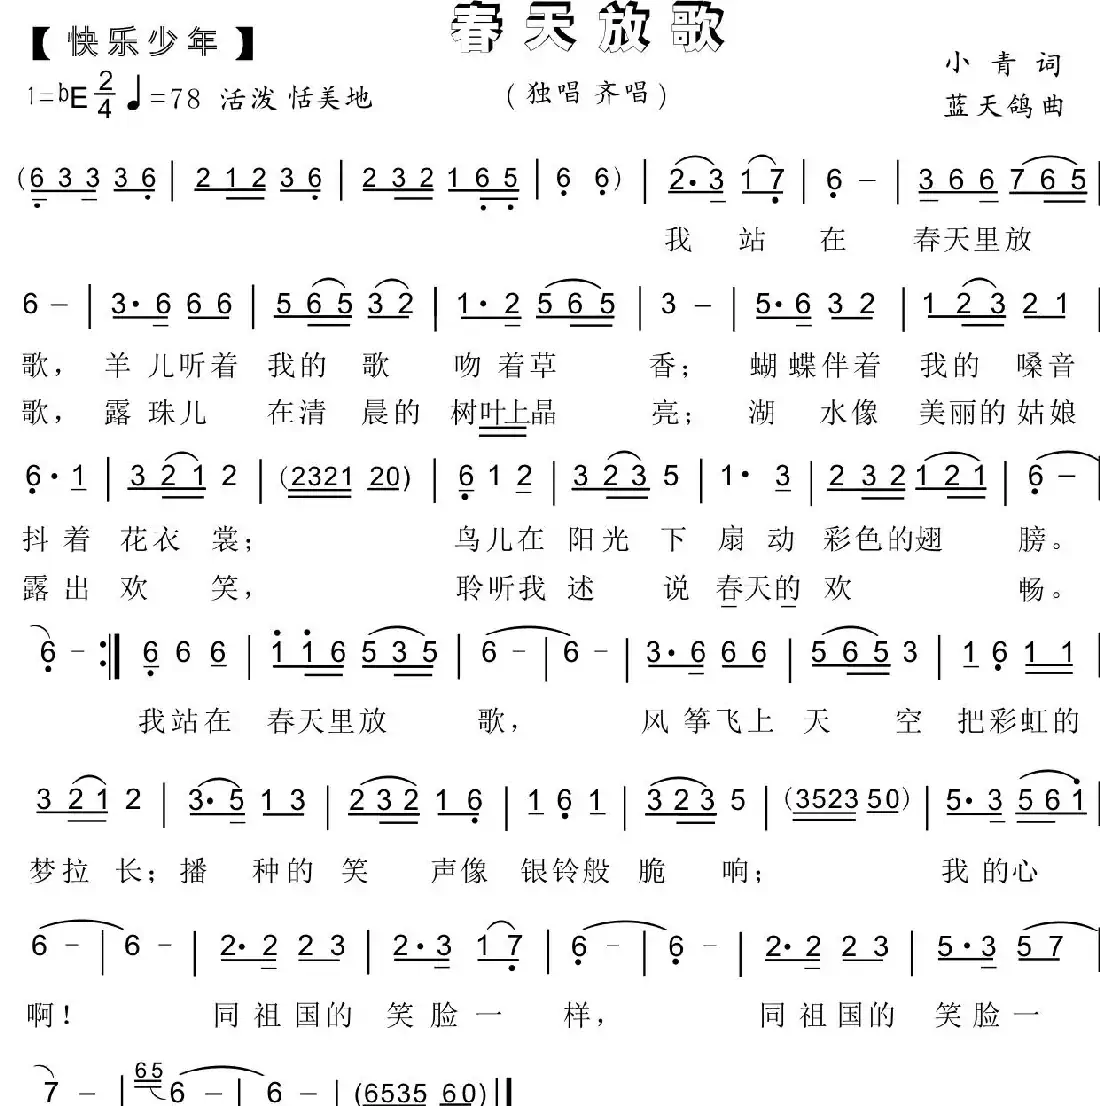 春天放歌
【快乐少年】
小青词
1=bE 2/4 ♩=78 活泼 恬美地
(独唱 齐唱)
蓝天鸽曲
(6 3 3 3 6 | 2 1 2 3 6 | 2 3 2 1 6 5 | 6 6) | 2· 3 1 7 | 6 - | 3 6 6 7 6 5 |
我 站 在 春天里放
6 - | 3· 6 6 6 | 5 6 5 3 2 | 1· 2 5 6 5 | 3 - | 5· 6 3 2 | 1 2 3 2 1 |
歌， 羊 儿听着 我的 歌 吻 着草 香； 蝴 蝶伴着 我的 嗓音
歌， 露 珠儿 在清 晨的 树叶上晶 亮； 湖 水像 美丽的 姑娘
6· 1 | 3 2 1 2 | (2321 20) | 6 1 2 | 3 2 3 5 | 1· 3 | 2 3 2 1 2 1 | 6 - |
抖着 花衣 裳； 鸟儿在 阳光 下 扇 动 彩色的翅 膀。
露出 欢 笑， 聆听我 述 说 春天的 欢 畅。
6 - :| 6 6 6 | 1 1 6 5 3 5 | 6 - | 6 - | 3· 6 6 6 | 5 6 5 3 | 1 6 1 1 |
我站在 春天里放 歌， 风 筝飞上 天 空 把彩虹的
3 2 1 2 | 3· 5 1 3 | 2 3 2 1 6 | 1 6 1 | 3 2 3 5 | (3523 50) | 5· 3 5 6 1 |
梦拉 长；播 种的 笑 声像 银铃般 脆 响； 我 的心
6 - | 6 - | 2· 2 2 3 | 2· 3 1 7 | 6 - | 6 - | 2· 2 2 3 | 5· 3 5 7 |
啊！ 同 祖 国的 笑 脸 一 样， 同 祖 国的 笑 脸 一
7 - | 65 6 - | 6 - | (6535 60) ‖